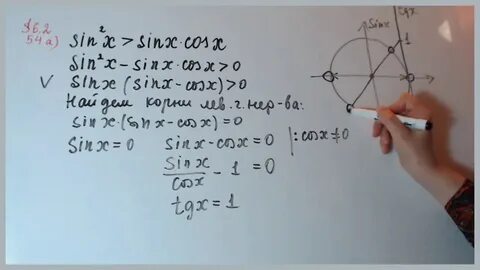 §6.2
54a)
sin²x > sinx·cosx
sin²x - sinx·cosx > 0
∨ sinx (sinx - cosx) > 0
Найдем корни лев. ч. нер-ва:
sinx·(sinx - cosx) = 0
sinx = 0    sinx - cosx = 0 |: cosx ≠ 0
sinx/cosx - 1 = 0
tgx = 1
sinx
tgx
1